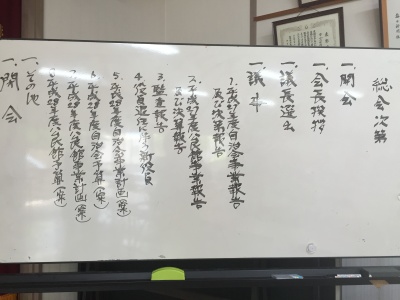 総会次第
一.開会
一.会長挨拶
一.議長選出
一.議事
1.平成27年度自治会事業報告
及び決算報告
2.平成27年度公民館事業報告
及び決算報告
3.監査報告
4.役員選任に
新役員
5.平成28年度自治会事業計画(案)
6.平成28年度自治会予算(案)
7.平成28年度公民館事業計画(案)
8.平成28年度公民館予算(案)
一.その他
一.閉会